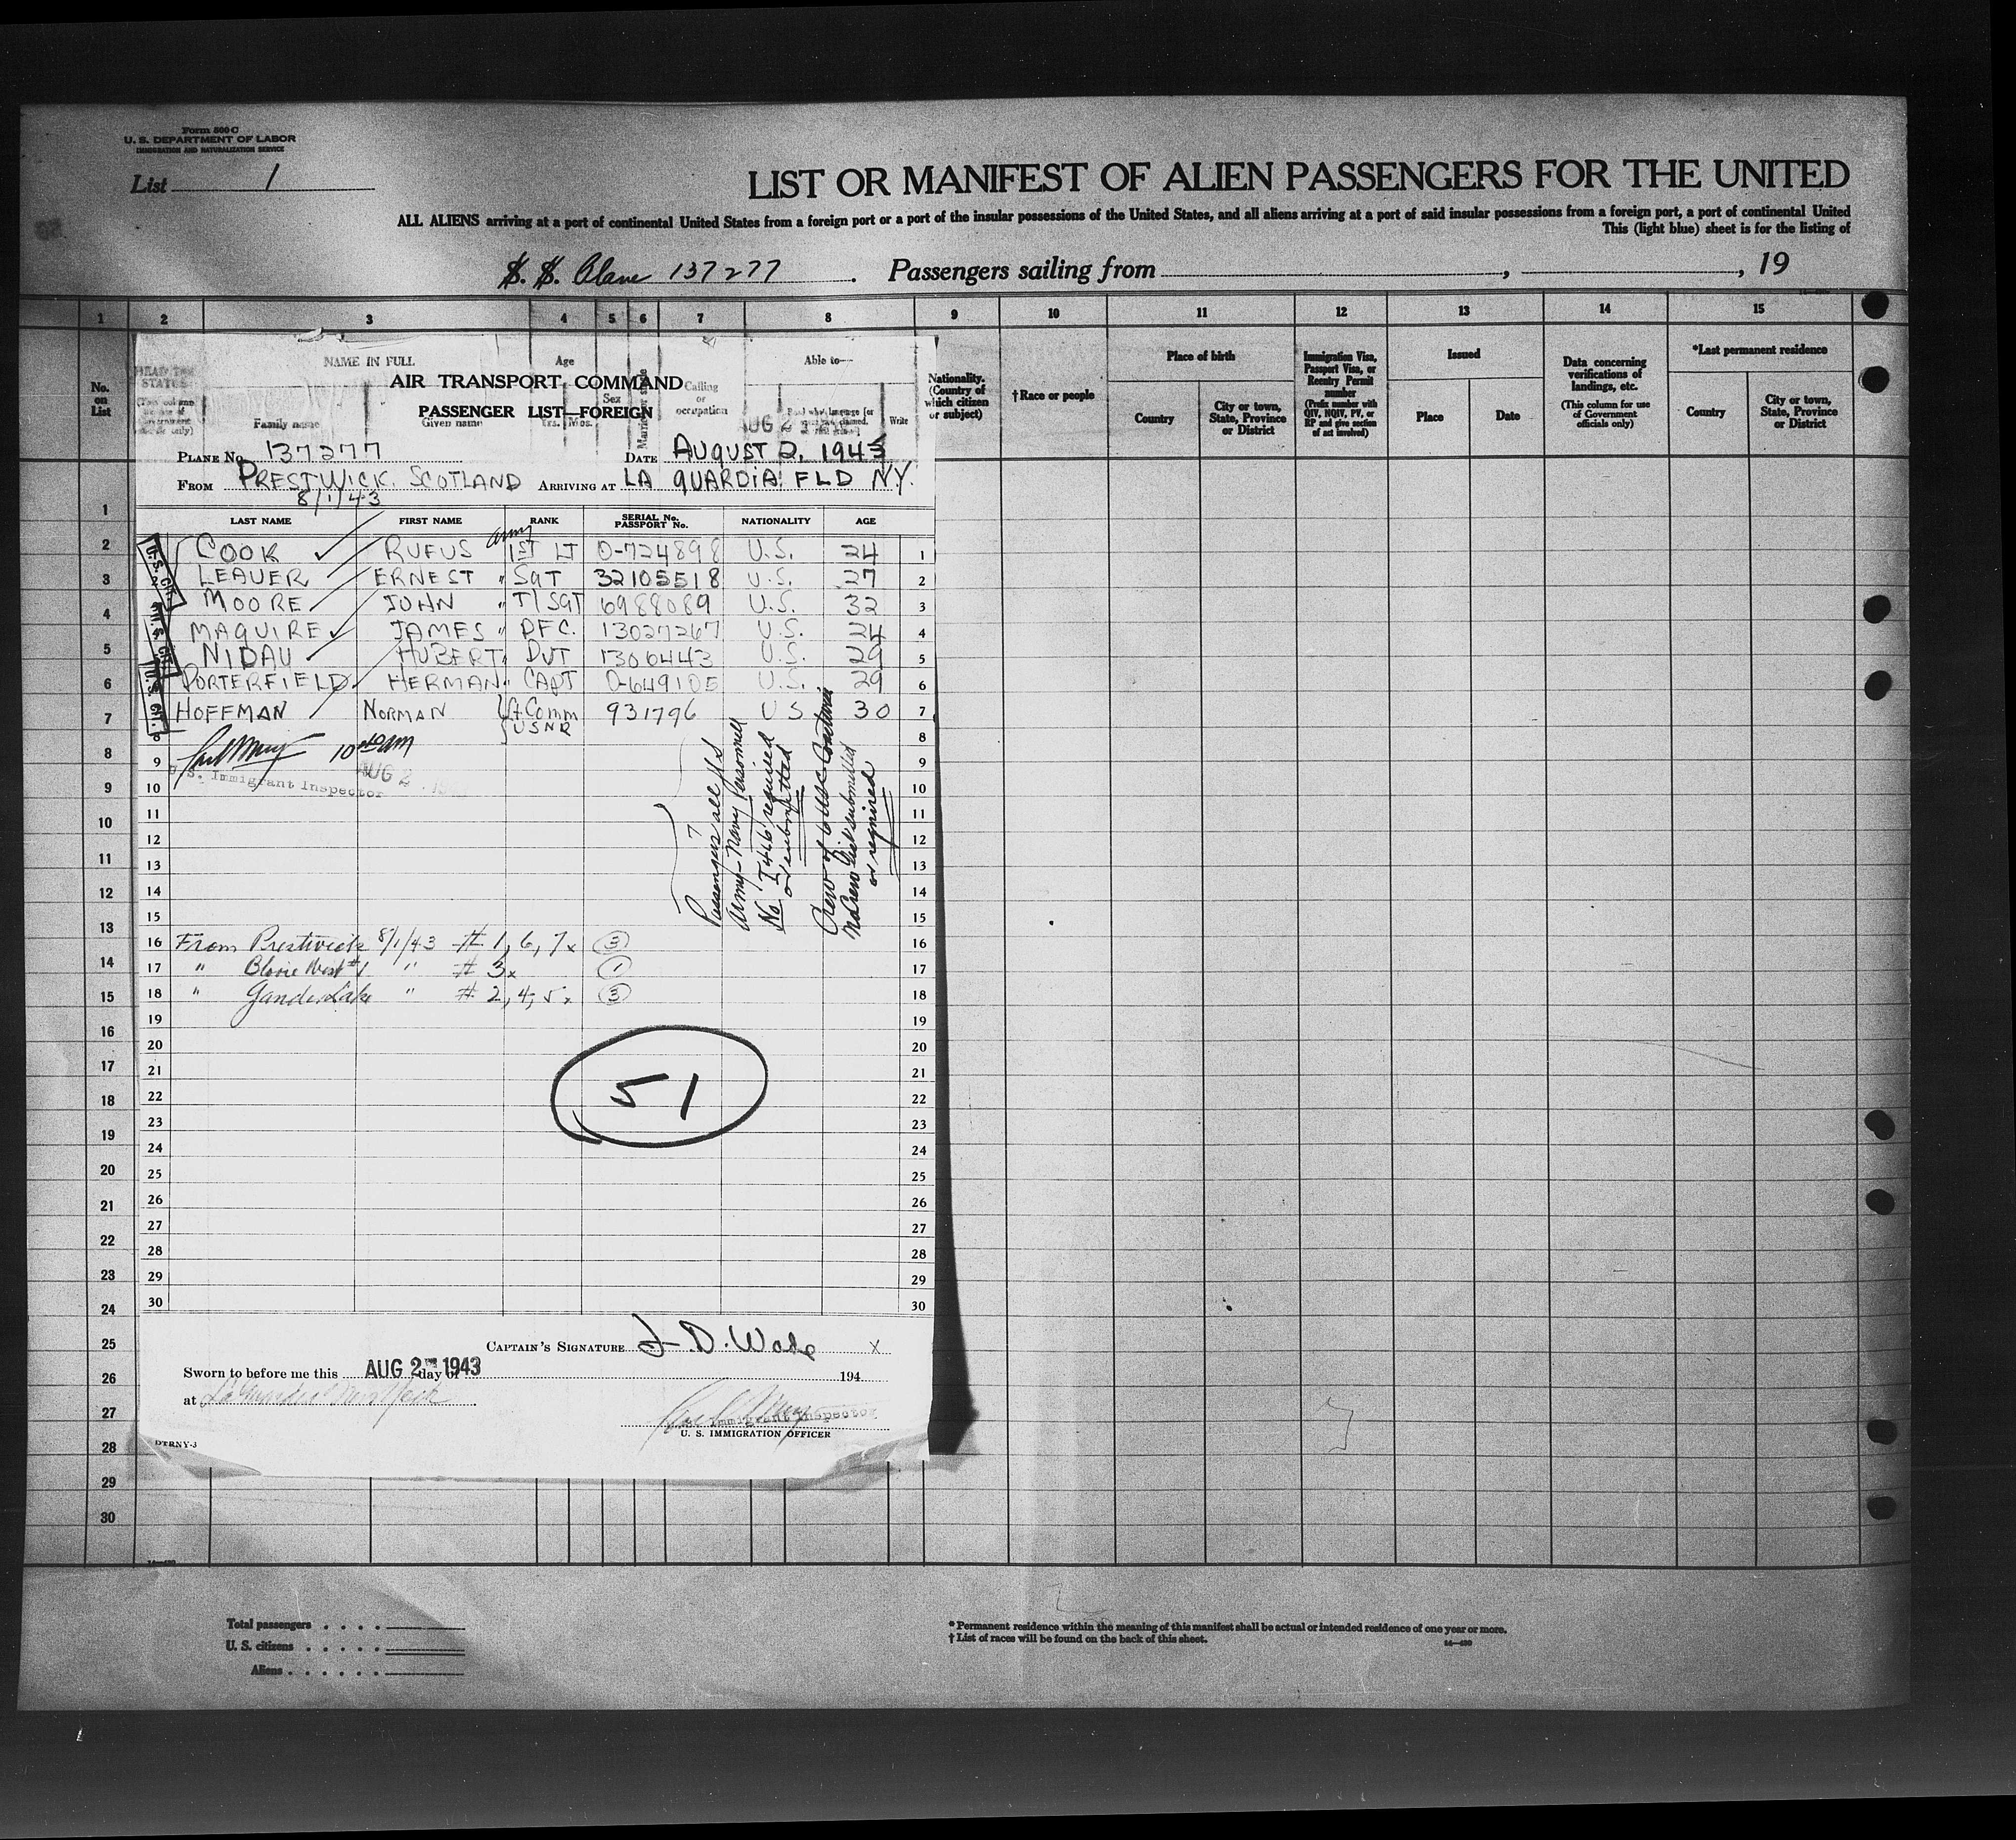 Form 500 C
U. S. DEPARTMENT OF LABOR
IMMIGRATION AND NATURALIZATION SERVICE
List 1
LIST OR MANIFEST OF ALIEN PASSENGERS FOR THE UNITED
ALL ALIENS arriving at a port of continental United States from a foreign port or a port of the insular possessions of the United States, and all aliens arriving at a port of said insular possessions from a foreign port, a port of continental United
This (light blue) sheet is for the listing of
S. S. Plane 137277. Passengers sailing from , , 19
1 2 3 4 5 6 7 8 9 10 11 12 13 14 15
No. on List
HEAD TAX STATUS
NAME IN FULL
Family name Given name
Age
Yrs. Mos.
Sex
Calling or occupation
Able to—
Write
Nationality. (Country of which citizen or subject)
†Race or people
Place of birth
Country
City or town, State, Province or District
Immigration Visa, Passport Visa, or Reentry Permit number
(Prefix number with QIV, NQIV, PV, or RP and give section of act involved)
Issued
Place Date
Data concerning verifications of landings, etc.
(This column for use of Government officials only)
*Last permanent residence
Country
City or town, State, Province or District
AIR TRANSPORT COMMAND
PASSENGER LIST—FOREIGN
AUG 2
PLANE No. 137277 DATE AUGUST 2, 1943
FROM PRESTWICK, SCOTLAND ARRIVING AT LA GUARDIA FLD N.Y.
8/1/43
LAST NAME FIRST NAME RANK SERIAL No. PASSPORT No. NATIONALITY AGE
Army
COOK RUFUS 1ST LT 0-724898 U.S. 24 1
LEAUER ERNEST " SGT 32105518 U.S. 27 2
MOORE JOHN " T/SGT 6988089 U.S. 32 3
MAQUIRE JAMES " PFC. 13027267 U.S. 24 4
NIDAU HUBERT " PVT 1306443 U.S. 29 5
PORTERFIELD HERMAN " CAPT 0-649105 U.S. 29 6
HOFFMAN NORMAN Lt. Comm USNR 931796 US 30 7
U.S. CIT.
U.S. CIT.
U.S. CIT.
10 40 am
U. S. Immigrant Inspector
AUG 2
7
Passengers all US
Army-Navy Personnel
No I 466 required
or submitted
Crew of 6 USC
No Crew List submitted
or required
From Prestwick 8/1/43 # 1, 6, 7x 3
" Bluie West #1 " # 3x 1
" Gander Lake " # 2, 4, 5x 3
51
8 9 10 11 12 13 14 15 16 17 18 19 20 21 22 23 24 25 26 27 28 29 30
8 9 10 11 12 13 14 15 16 17 18 19 20 21 22 23 24 25 26 27 28 29 30
CAPTAIN'S SIGNATURE J. D. Wade x
Sworn to before me this AUG 2 1943 day of 194
at La Guardia New York
U. S. Immigrant Inspector
U. S. IMMIGRATION OFFICER
DTRNY-3
1 2 3 4 5 6 7 8 9 9 10 11 12 13 14 15 16 17 18 19 20 21 22 23 24 25 26 27 28 29 30
Total passengers
U. S. citizens
Aliens
* Permanent residence within the meaning of this manifest shall be actual or intended residence of one year or more.
† List of races will be found on the back of this sheet.